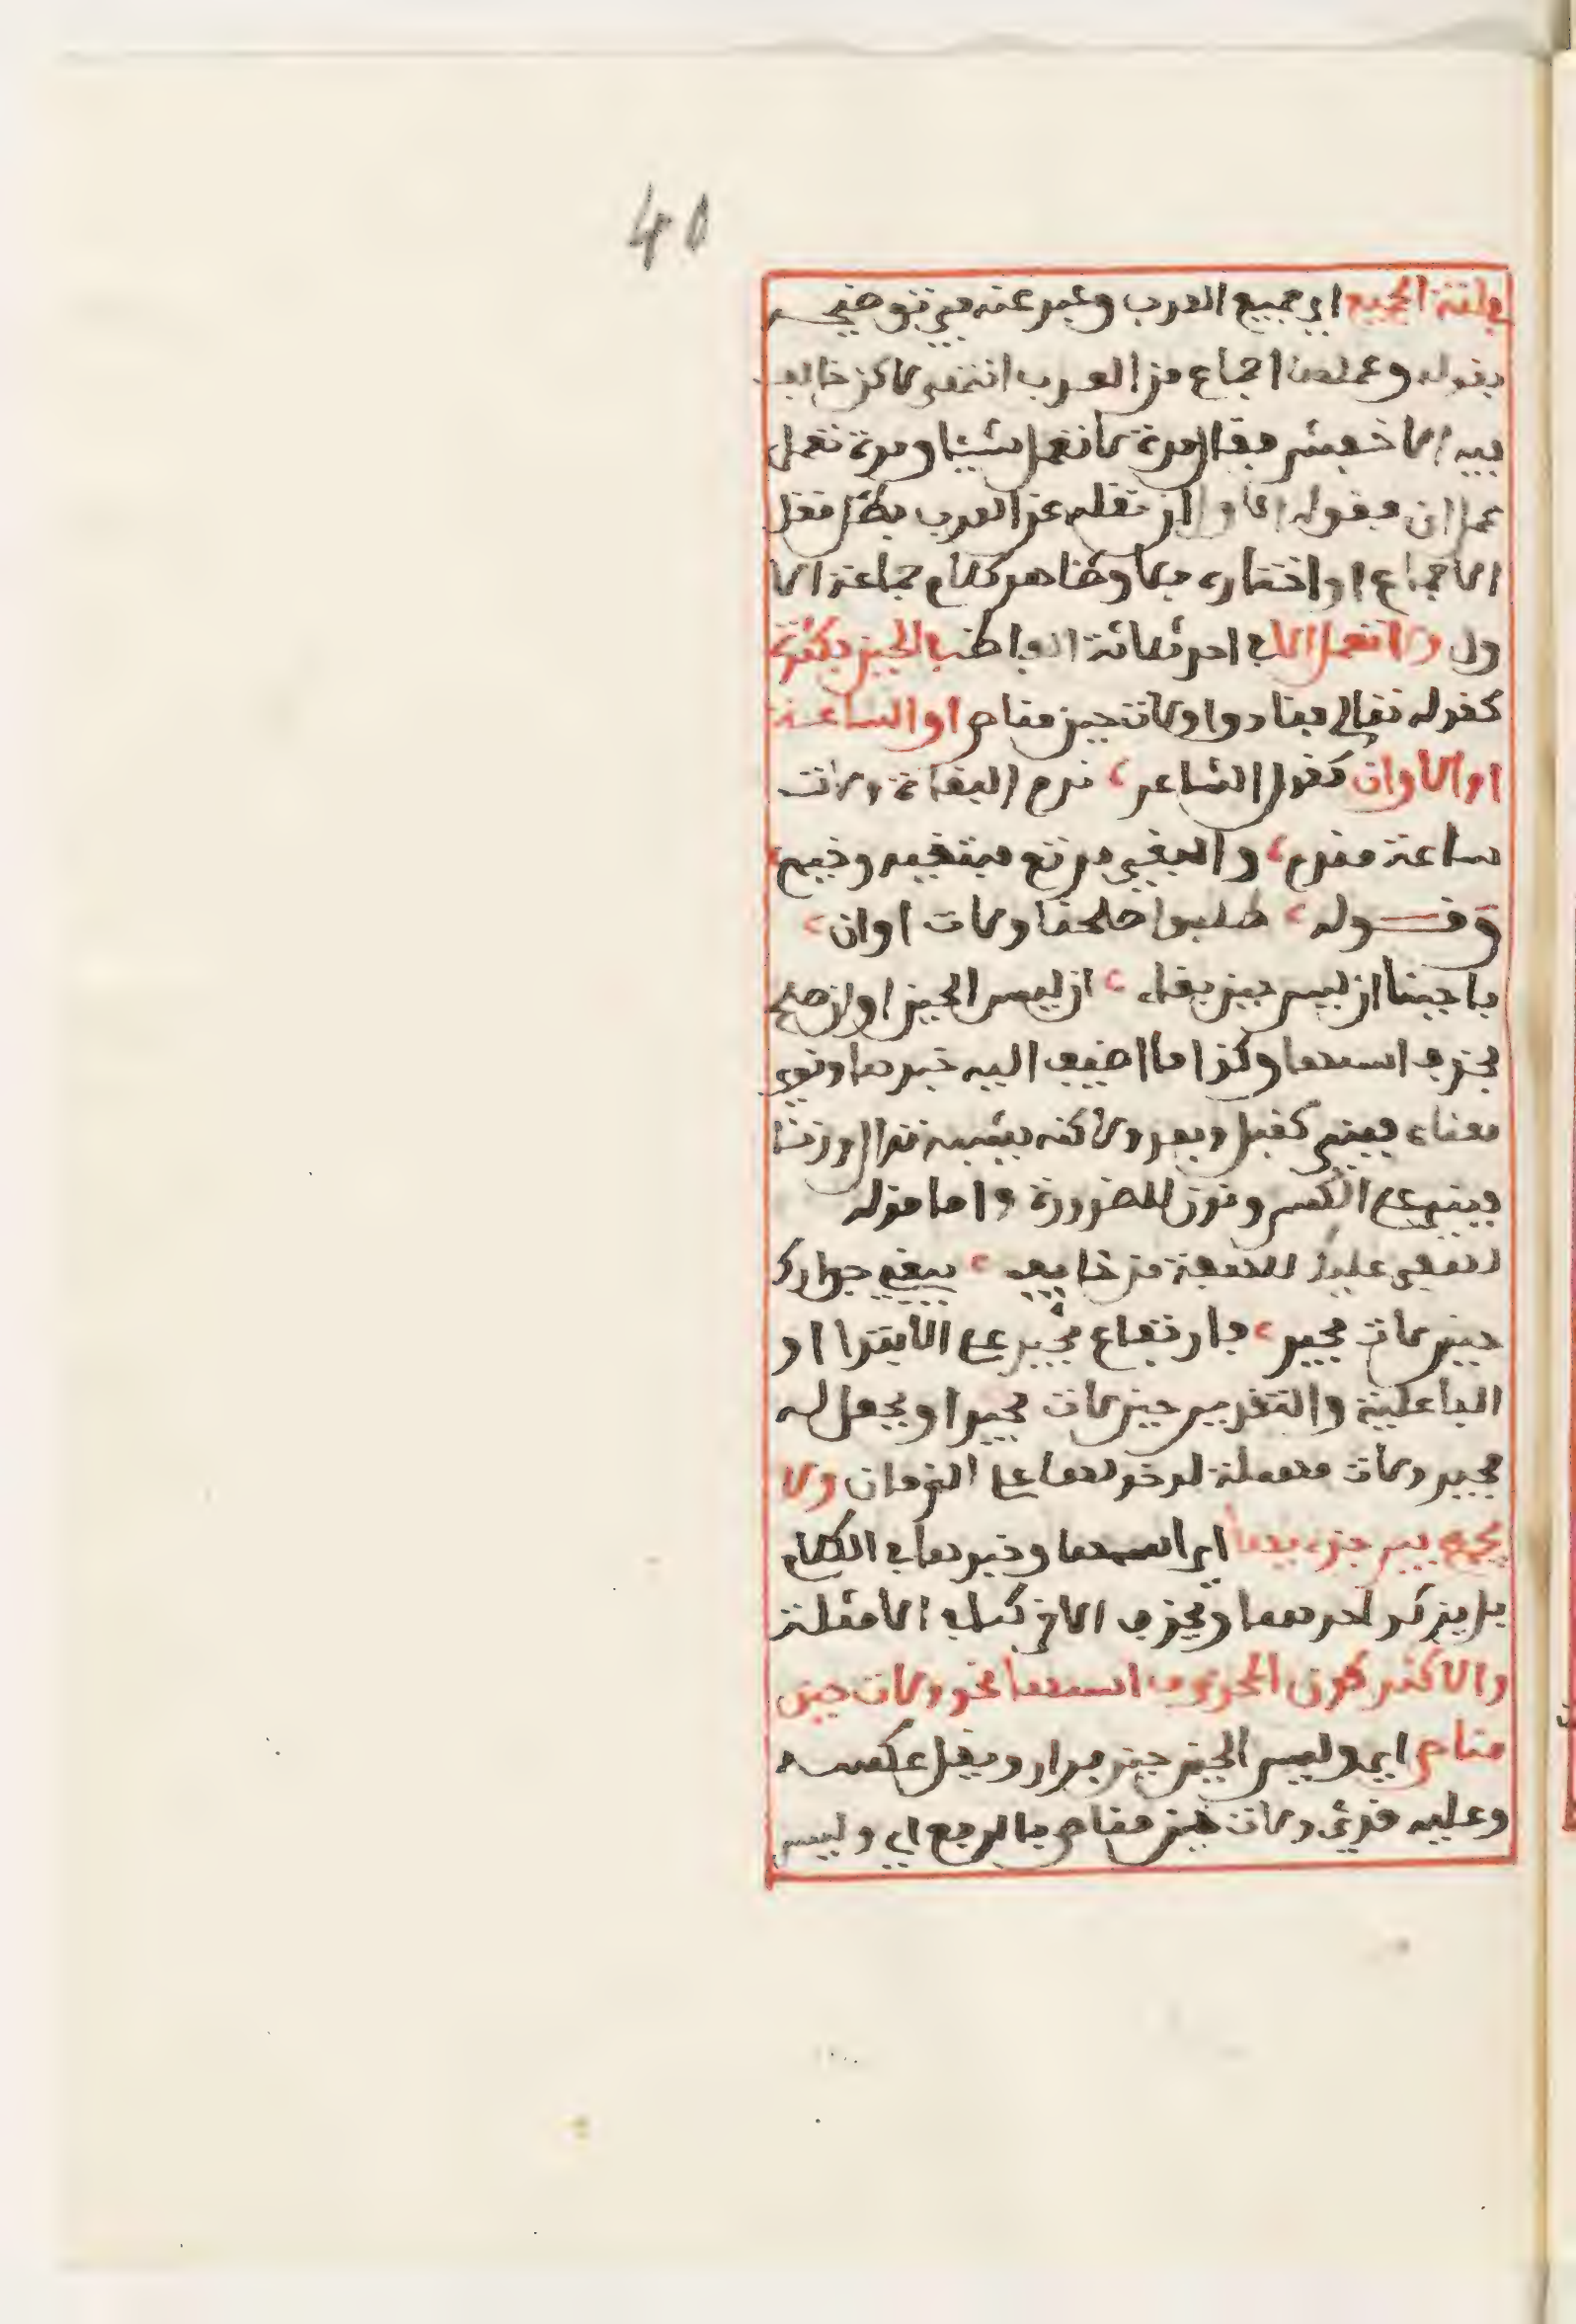 40
في لغة الجميع اي جميع العرب وعبر عنه في توضيحه
بقوله وعملها اجماع من العرب انتهى لاكن خالف
فيه الاخفش فقال مرة لا تعمل شيئا ومرة تعمل
عمل ان فقوله الاول ان نقله عن العرب بطل نقل
الاجماع او اختاره فلا وظاهر كلام جماعة الا
ول ولا تعمل الا في احد ثلاثة الفاظ في الحين بكثرة
كقوله تعالى فنادوا ولات حين مناص او الساعة
او الاوان كقول الشاعر ندم البغاة ولات
ساعة مندم والبغي مرتع مبتغيه وخيم
وقوله طلبوا صلحنا ولات اوان
فاجبنا ان ليس حين بقاء ان ليس الحين اوان صلح
فحذف اسمها وكذا ما اضيف اليه خبرها ونوي
معناه فبني كقبل وبعد ولاكنه بشبهه نزال وزنا
وبني على الكسر ونون للضرورة واما قوله
لهفي عليك للهفة من خايف يبغي جوارك
حين لات مجير فارتفاع مجير على الابتدا او
الفاعلية والتقدير حين لات مجير او يحصل له
مجير ولات مهملة لدخولها على الزمان ولا
يجمع بين جزءيها اي اسمها وخبرها في الكلام
بل يذكر احدهما ويحذف الاخر كتلك الامثلة
والاكثر كون المحذوف اسمها نحو ولات حين
مناص اي وليس الحين حين فرار ويقل عكسه
وعليه قرئ ولات حين مناص بالرفع اي وليس